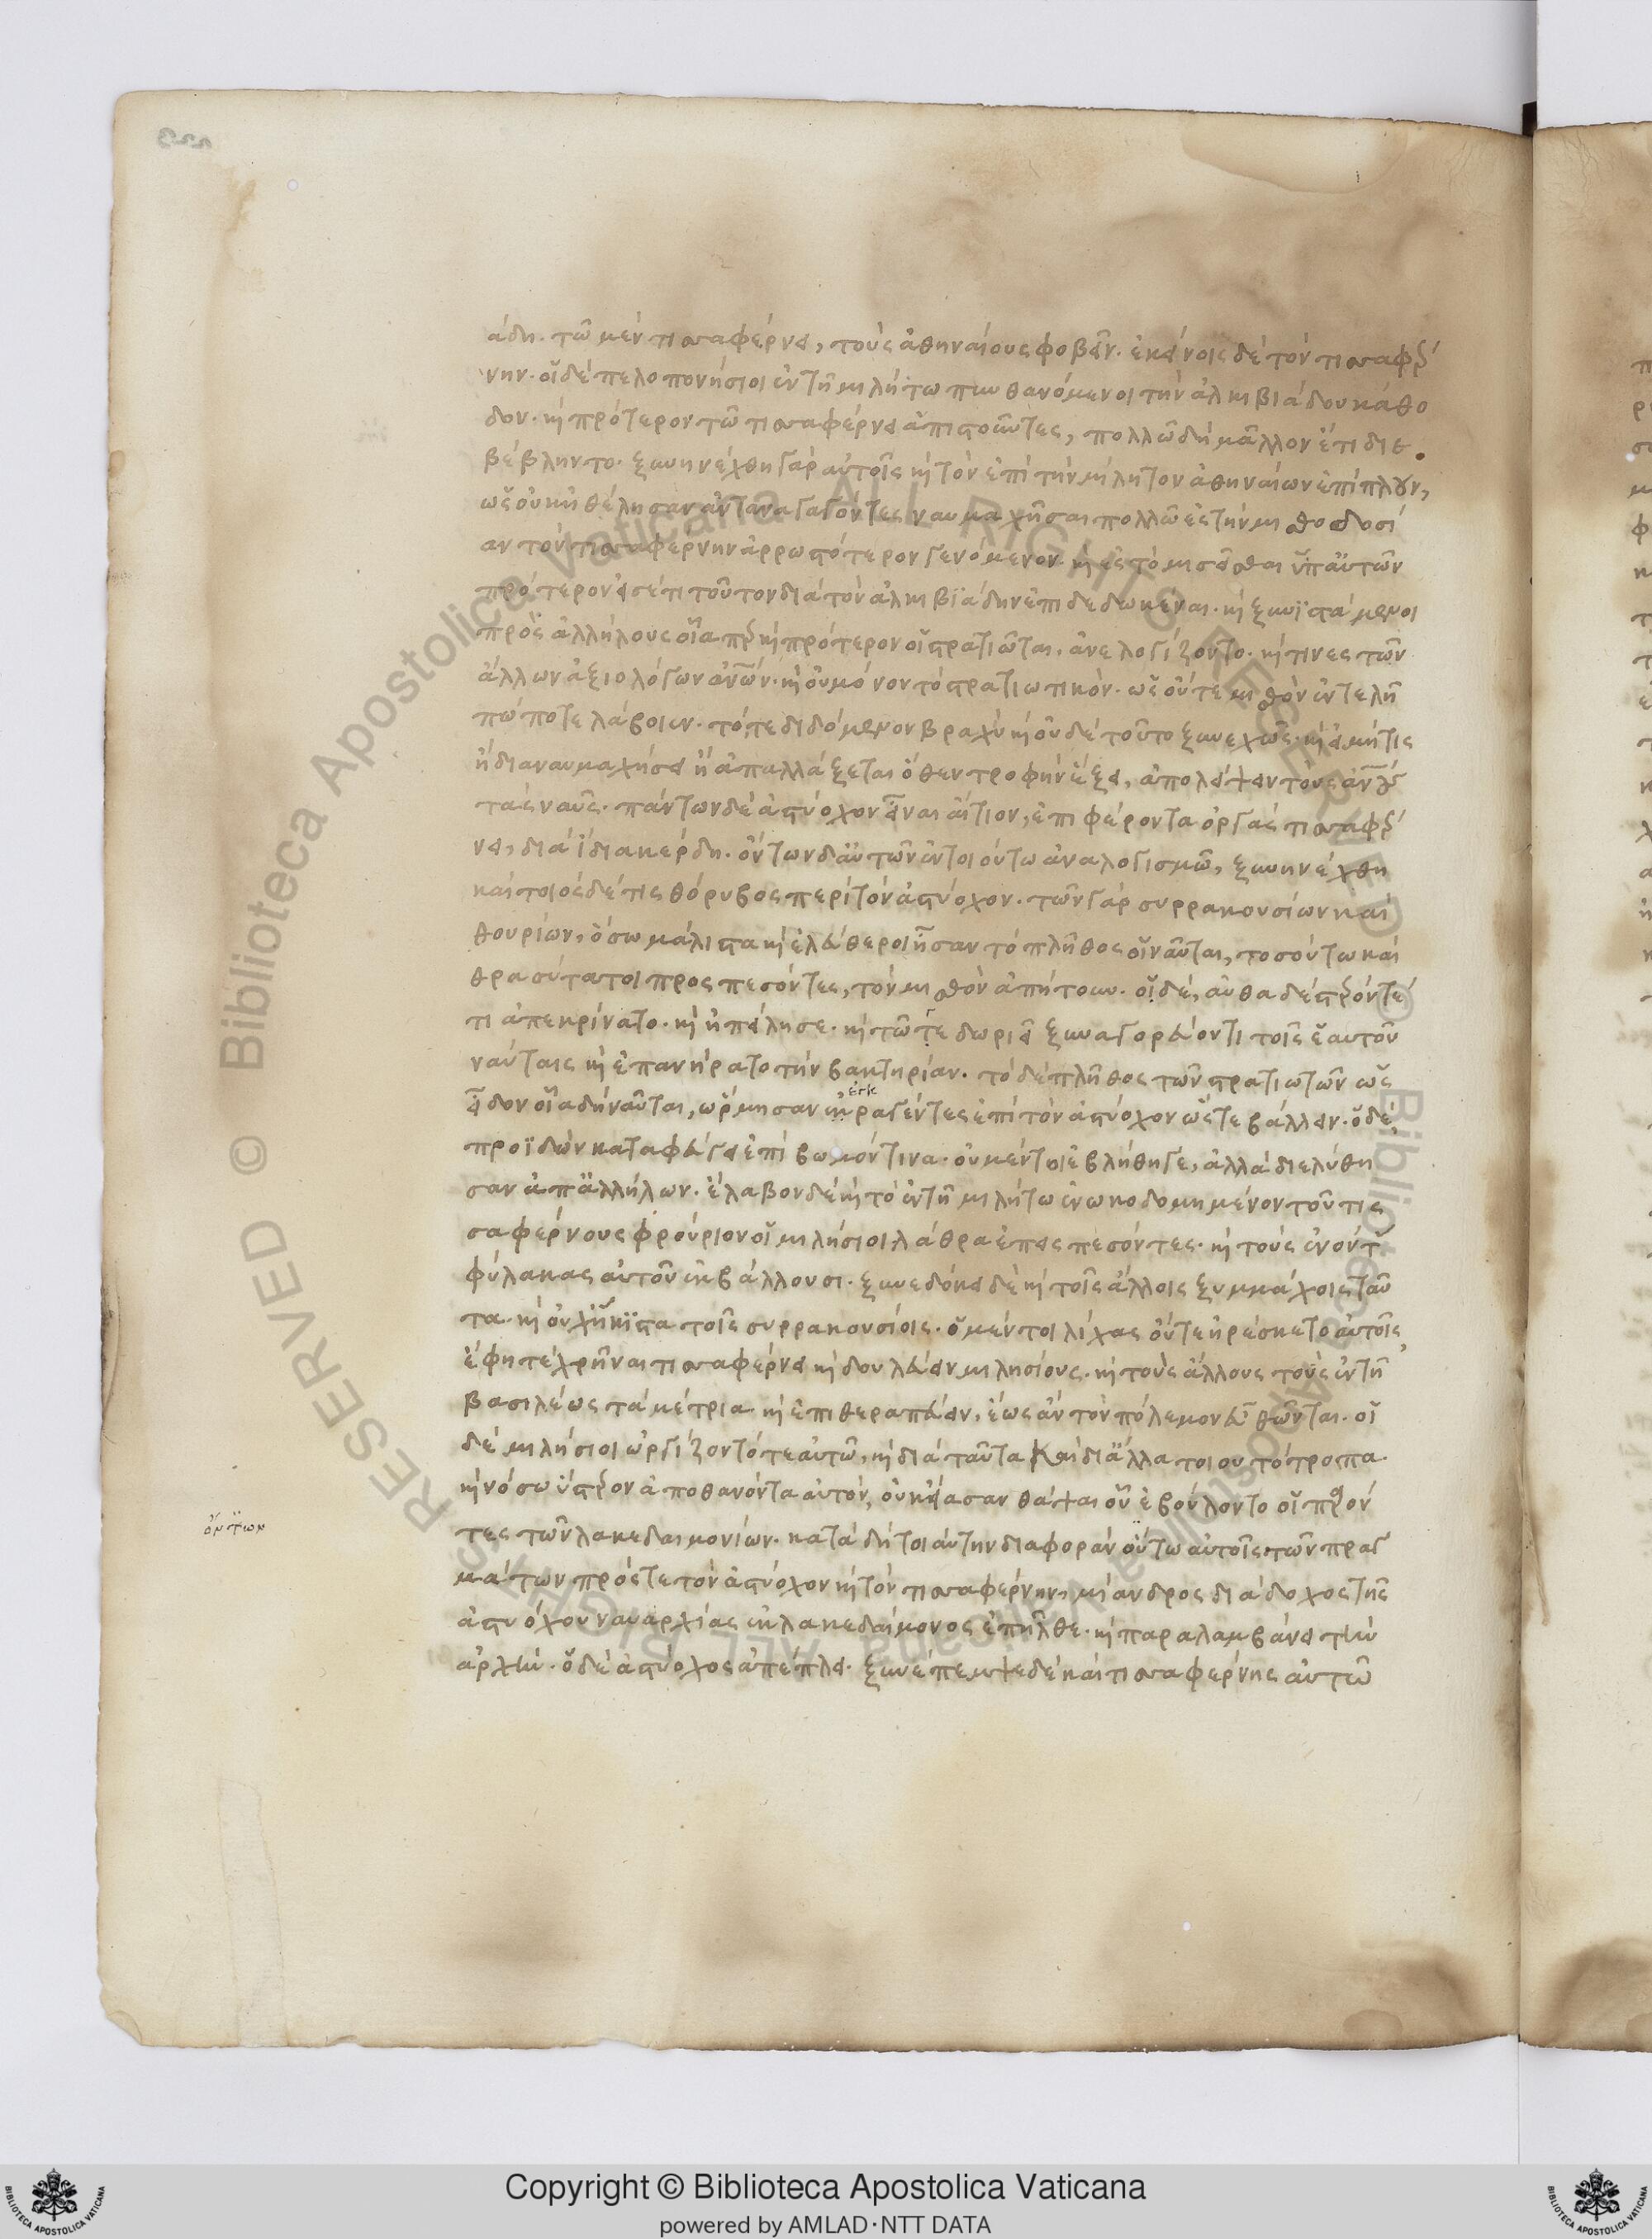 άδη. τῶ μὲν τισσαφέρνει, τοὺς ἀθηναίους φοβεῖν. ἐκείνοις δὲ τὸν τισσαφέρ
νην. οἱ δὲ πελοπονήσιοι ἐν τῆ μιλήτω πυνθανόμενοι τὴν ἀλκιβιάδου κάθο
δον. καὶ πρότερον τῶ τισσαφέρνει ἀπιστοῦντες, πολλῶ δὴ μᾶλλον ἔτι διε
βέβληντο. ξυνηνέχθη γὰρ αὐτοῖς καὶ τὸν ἐπὶ τὴν μίλητον ἀθηναίων ἐπίπλουν,
ὡς οὐκ ἠθέλησαν ἀνταναγαγόντες ναυμαχῆσαι πολλῶ ἐς τὴν μισθοδοσί
αν τὸν τισσαφέρνην ἀρρωστότερον γενόμενον. καὶ ἐς τὸ μισεῖσθαι ὑπ αὐτῶν
πρότερον εἰσέτι τοῦτον διὰ τὸν ἀλκιβιάδην ἐπιδεδωκέναι. καὶ ξυνϊστάμενοι
πρὸς ἀλλήλους οἷα περ καὶ πρότερον οἱ στρατιῶται, ἀνελογίζοντο. καί τινες τῶν
ἄλλων ἀξιολόγων ἀνων. καὶ οὐ μόνον τὸ στρατιωτικόν. ὡς οὔτε μισθὸν ἐντελῆ
πώποτε λάβοιεν. τό τε διδόμενον βραχὺ καὶ οὐδὲ τοῦτο ξυνεχῶς. καὶ εἰ μή τις
ἢ διαναυμαχήσει ἢ ἀπαλλάξεται ὅθεν τροφὴν ἕξει, ἀπολείψειν τοὺς ἀνους
τὰς ναῦς. πάντων δὲ ἀστύοχον εἶναι αἴτιον, ἐπιφέροντα ὀργὰς τισσαφέρ
νει, διὰ ἴδια κέρδη. ὄντων δ αὐτῶν ἐν τοιούτω ἀναλογισμῶ, ξυνηνέχθη
καὶ τοιόσδέ τις θόρυβος περὶ τὸν ἀστύοχον. τῶν γὰρ συρρακουσίων καὶ
θουρίων, ὅσω μάλιστα καὶ ἐλεύθεροι ἦσαν τὸ πλῆθος οἱ ναῦται, τοσούτω καὶ
θρασύτατοι προσπεσόντες, τὸν μισθὸν ἀπήτουν. ὁ δὲ, αὐθαδέστερόν τέ
τι ἀπεκρίνατο. καὶ ἠπείλησε. καὶ τῶ γε δωριεῖ ξυναγορεύοντι τοῖς ἑαυτοῦ
ναύταις καὶ ἐπανήρατο τὴν βακτηρίαν. τὸ δὲ πλῆθος τῶν στρατιωτῶν ὡς
εἶδον οἷα δὴ ναῦται, ὥρμησαν ἐκραγέντες ἐπὶ τὸν ἀστύοχον ὥστε βάλλειν. ὁ δὲ
προϊδὼν καταφεύγει ἐπὶ βωμόν τινα. οὐ μέντοι ἐβλήθη γε, ἀλλὰ διελύθη
σαν ἀπ ἀλλήλων. ἔλαβον δὲ καὶ τὸ ἐν τῆ μιλήτω ἐνωκοδομημένον τοῦ τισ
σαφέρνους φρούριον οἱ μιλήσιοι λάθρα ἐπεσπεσόντες. καὶ τοὺς ἐνόντας
φύλακας αὐτοῦ ἐκβάλλουσι. ξυνεδόκει δὲ καὶ τοῖς ἄλλοις ξυμμάχοις ταῦ
τα. καὶ οὐχ ἥκιστα τοῖς συρρακουσίοις. ὁ μέντοι λίχας οὔτε ἠρέσκετο αὐτοῖς,
ἔφη τε χρῆναι τισσαφέρνει καὶ δουλεύειν μιλησίους. καὶ τοὺς ἄλλους τοὺς ἐν τῆ
βασιλέως τὰ μέτρια καὶ ἐπιθεραπεύειν, ἕως ἂν τὸν πόλεμον εὖ θῶνται. οἱ
δὲ μιλήσιοι ὠργίζοντό τε αὐτῶ, καὶ διὰ ταῦτα καὶ δι ἄλλα τοιουτότροπα.
καὶ νόσω ὕστερον ἀποθανόντα αὐτὸν, οὐκ εἴασαν θάψαι οὗ ἐβούλοντο οἱ παρόν
τες τῶν λακεδαιμονίων. κατὰ δὴ τοιαύτην διαφορὰν οὕτω αὐτοῖς τῶν πραγ
ὄντων
μάτων πρός τε τὸν ἀστύοχον καὶ τὸν τισσαφέρνην, μίνδαρος διάδοχος τῆς
ἀστυόχου ναυαρχίας ἐκ λακεδαίμονος ἐπῆλθε. καὶ παραλαμβάνει τὴν
ἀρχήν. ὁ δὲ ἀστύοχος ἀπέπλει. ξυνέπεμψε δὲ καὶ τισσαφέρνης αὐτῶ
Copyright © Biblioteca Apostolica Vaticana
powered by AMLAD·NTT DATA